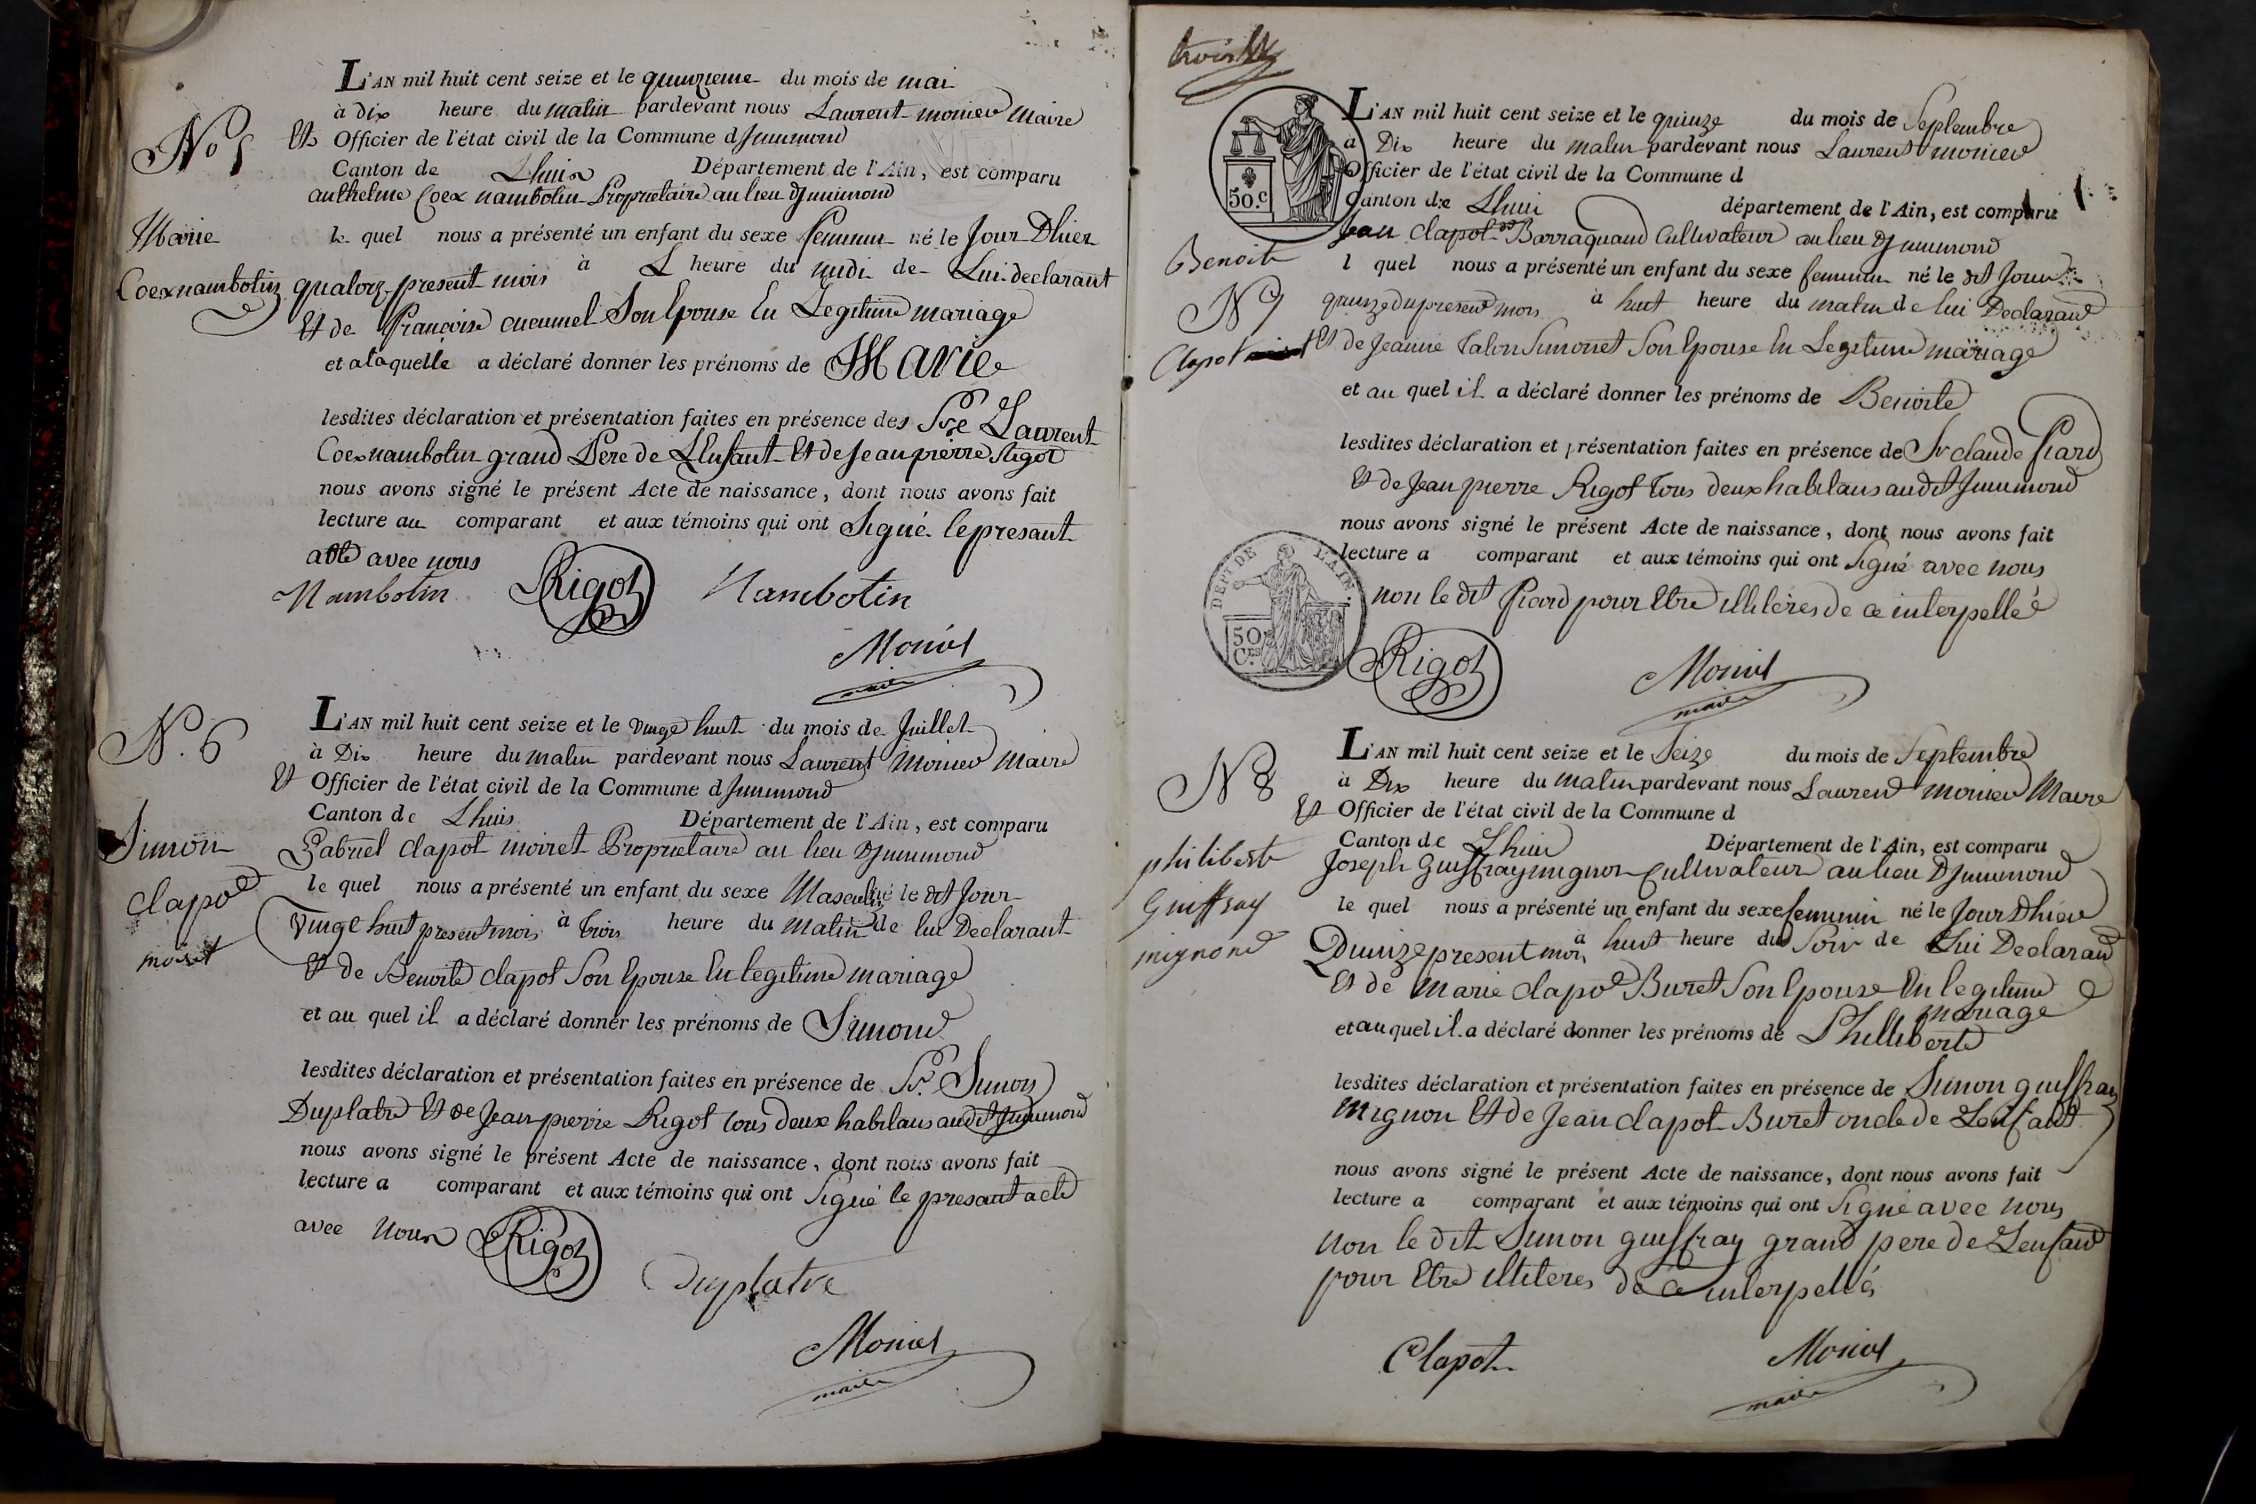 L'AN mil huit cent seize et le quinzieme du mois de mai
à Dix heure du matin pardevant nous Laurent monier Maire
No 5
Et Officier de l'état civil de la Commune dJnnimond
Canton de Lhuis Département de l'Ain, est comparu
anthelme Coex nambotin Proprietaire au lieu dJnnimond
Marie
le quel nous a présenté un enfant du sexe feminin né le Jour Dhier
Coexnambotin
quatorz present mois à L heure du midi de Lui declarant
Et de Françoise cucumel Son Epouse En Legitime mariage
et a laquelle a déclaré donner les prénoms de Marie
lesdites déclaration et présentation faites en présence des Sre Laurent
Coexnambotin grand Pere de LEnfant Et de Jean pierre Rigot
nous avons signé le présent Acte de naissance, dont nous avons fait
lecture au comparant et aux témoins qui ont Signé le presant
acte avec nous
Nambotin Rigot Nambotin
Monier
maire
N. 6
L'AN mil huit cent seize et le vingt huit du mois de Juillet
à Dix heure du matin pardevant nous Laurent Monier Maire
Et Officier de l'état civil de la Commune dJnnimond
Canton de Lhuis Département de l'Ain, est comparu
Simon
Gabriel clapot moiret Proprietaire au lieu DJnnimond
clapot
le quel nous a présenté un enfant du sexe Masculin né le dit Jour
moiret
vingt huit present mois à trois heure du matin de lui Declarant
Et de Benoite clapot Son Epouse En legitime mariage
et au quel il a déclaré donner les prénoms de Simond
lesdites déclaration et présentation faites en présence de Sr. Simon
Duplatre Et de Jean pierre Rigot tous deux habitans audit Jnnimond
nous avons signé le présent Acte de naissance, dont nous avons fait
lecture a comparant et aux témoins qui ont Signé le presant acte
avec Nous Rigot
Duplatre
Monier
maire
L'AN mil huit cent seize et le quinze du mois de Septembre
à Dix heure du matin pardevant nous Laurent monier
50.c
Officier de l'état civil de la Commune d
Canton de Lhuis département de l'Ain, est comparu
Jean Clapot dit Barraquand Cultivateur au lieu DJnnimond
Benoite
l quel nous a présenté un enfant du sexe feminin né le dit Jour
N 7
quinze du present mois à huit heure du matin de lui Declarant
Clapot
Et de Jeanne Talon Simonet Son Epouse En Legitime mariage
et au quel il a déclaré donner les prénoms de Benoite
lesdites déclaration et présentation faites en présence de Sr claude Picard
Et de Jean pierre Rigot tous deux habitans audit Jnnimond
nous avons signé le présent Acte de naissance, dont nous avons fait
lecture a comparant et aux témoins qui ont Signé avec nous
DEPT DE L'AIN.
50 Ces
non le dit Picard pour Etre illiteres de ce interpellé
Rigot Monier
maire
N 8
L'AN mil huit cent seize et le Seize du mois de Septembre
à Dix heure du matin pardevant nous Laurent monier Maire
Et Officier de l'état civil de la Commune d
Canton de Lhuis Département de l'Ain, est comparu
philiberte
Joseph Guiffray mignon Cultivateur au lieu DJnnimond
Guiffray
le quel nous a présenté un enfant du sexe feminin né le Jour Dhier
mignond
Quinze present mois à huit heure du Soir de Lui Declarant
Et de Marie clapot Buret Son Epouse En legitime
mariage
et au quel il a déclaré donner les prénoms de Philliberte
lesdites déclaration et présentation faites en présence de Simon guiffray
Mignon Et de Jean clapot Buret oncle de Lenfant
nous avons signé le présent Acte de naissance, dont nous avons fait
lecture a comparant et aux témoins qui ont Signé avec nous
Non le dit Simon guiffray grand pere de Lenfant
pour Etre illiteres de ce interpellés
Clapot Monier
maire